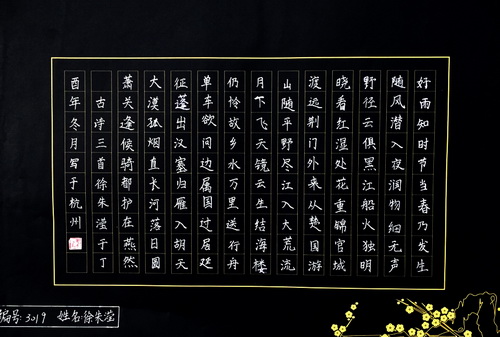 好雨知时节当春乃发生
随风潜入夜润物细无声
野径云俱黑江船火独明
晓看红湿处花重锦官城
渡远荆门外来从楚国游
山随平野尽江入大荒流
月下飞天镜云生结海楼
仍怜故乡水万里送行舟
单车欲问边属国过居延
征蓬出汉塞归雁入胡天
大漠孤烟直长河落日圆
萧关逢候骑都护在燕然
古诗三首徐朱滢于丁
酉年冬月写于杭州
编号:3019 姓名:徐朱滢